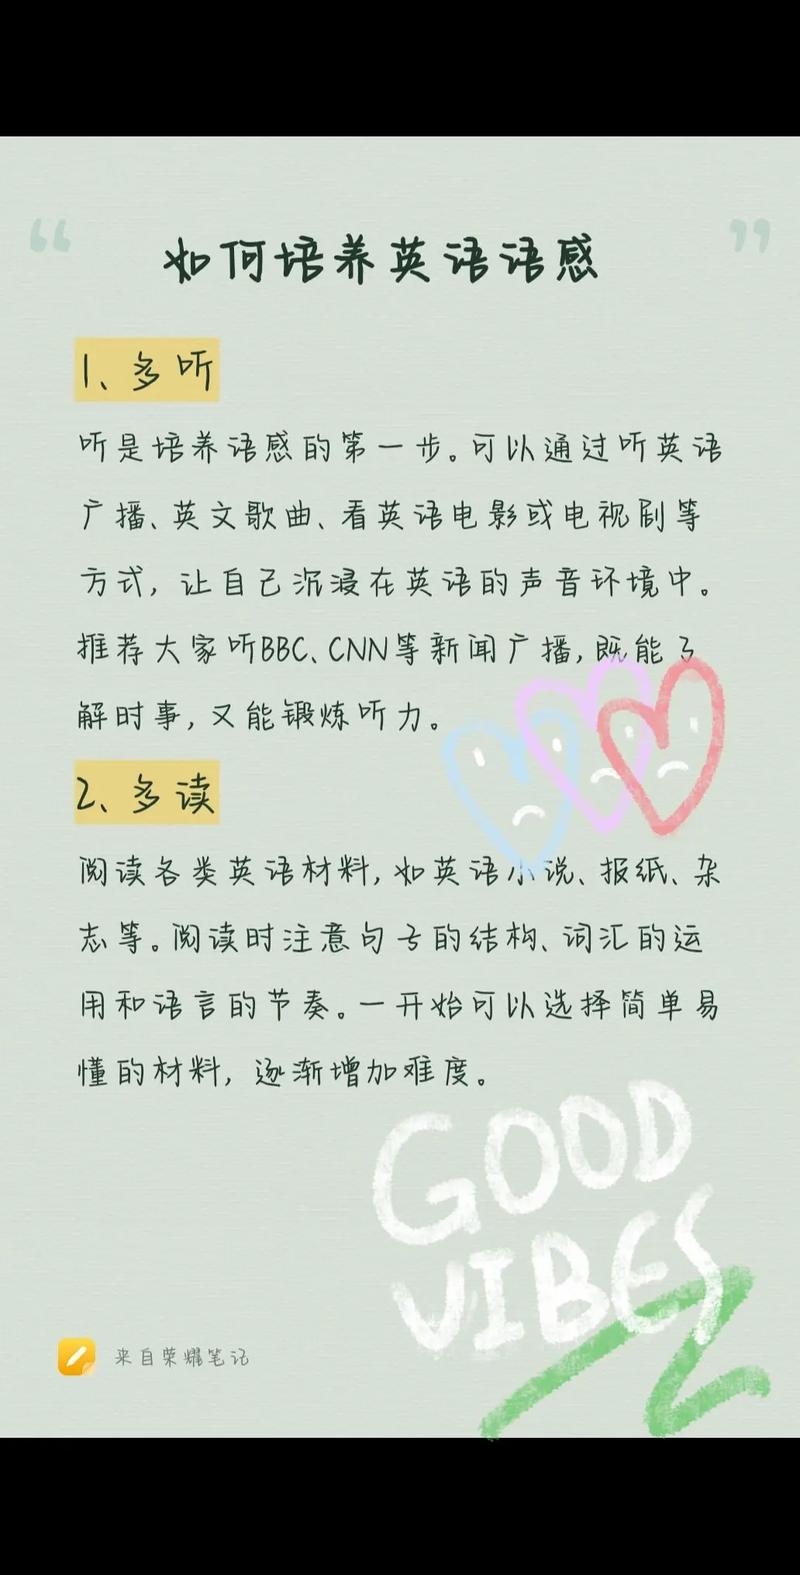 “ ”
如何培养英语语感
1、多听
听是培养语感的第一步。可以通过听英语
广播、英文歌曲、看英语电影或电视剧等
方式，让自己沉浸在英语的声音环境中。
推荐大家听BBC、CNN等新闻广播，既能了
解时事，又能锻炼听力。
2、多读
阅读各类英语材料，如英语小说、报纸、杂
志等。阅读时注意句子的结构、词汇的运
用和语言的节奏。一开始可以选择简单易
懂的材料，逐渐增加难度。
GOOD
VIBES
来自荣耀笔记